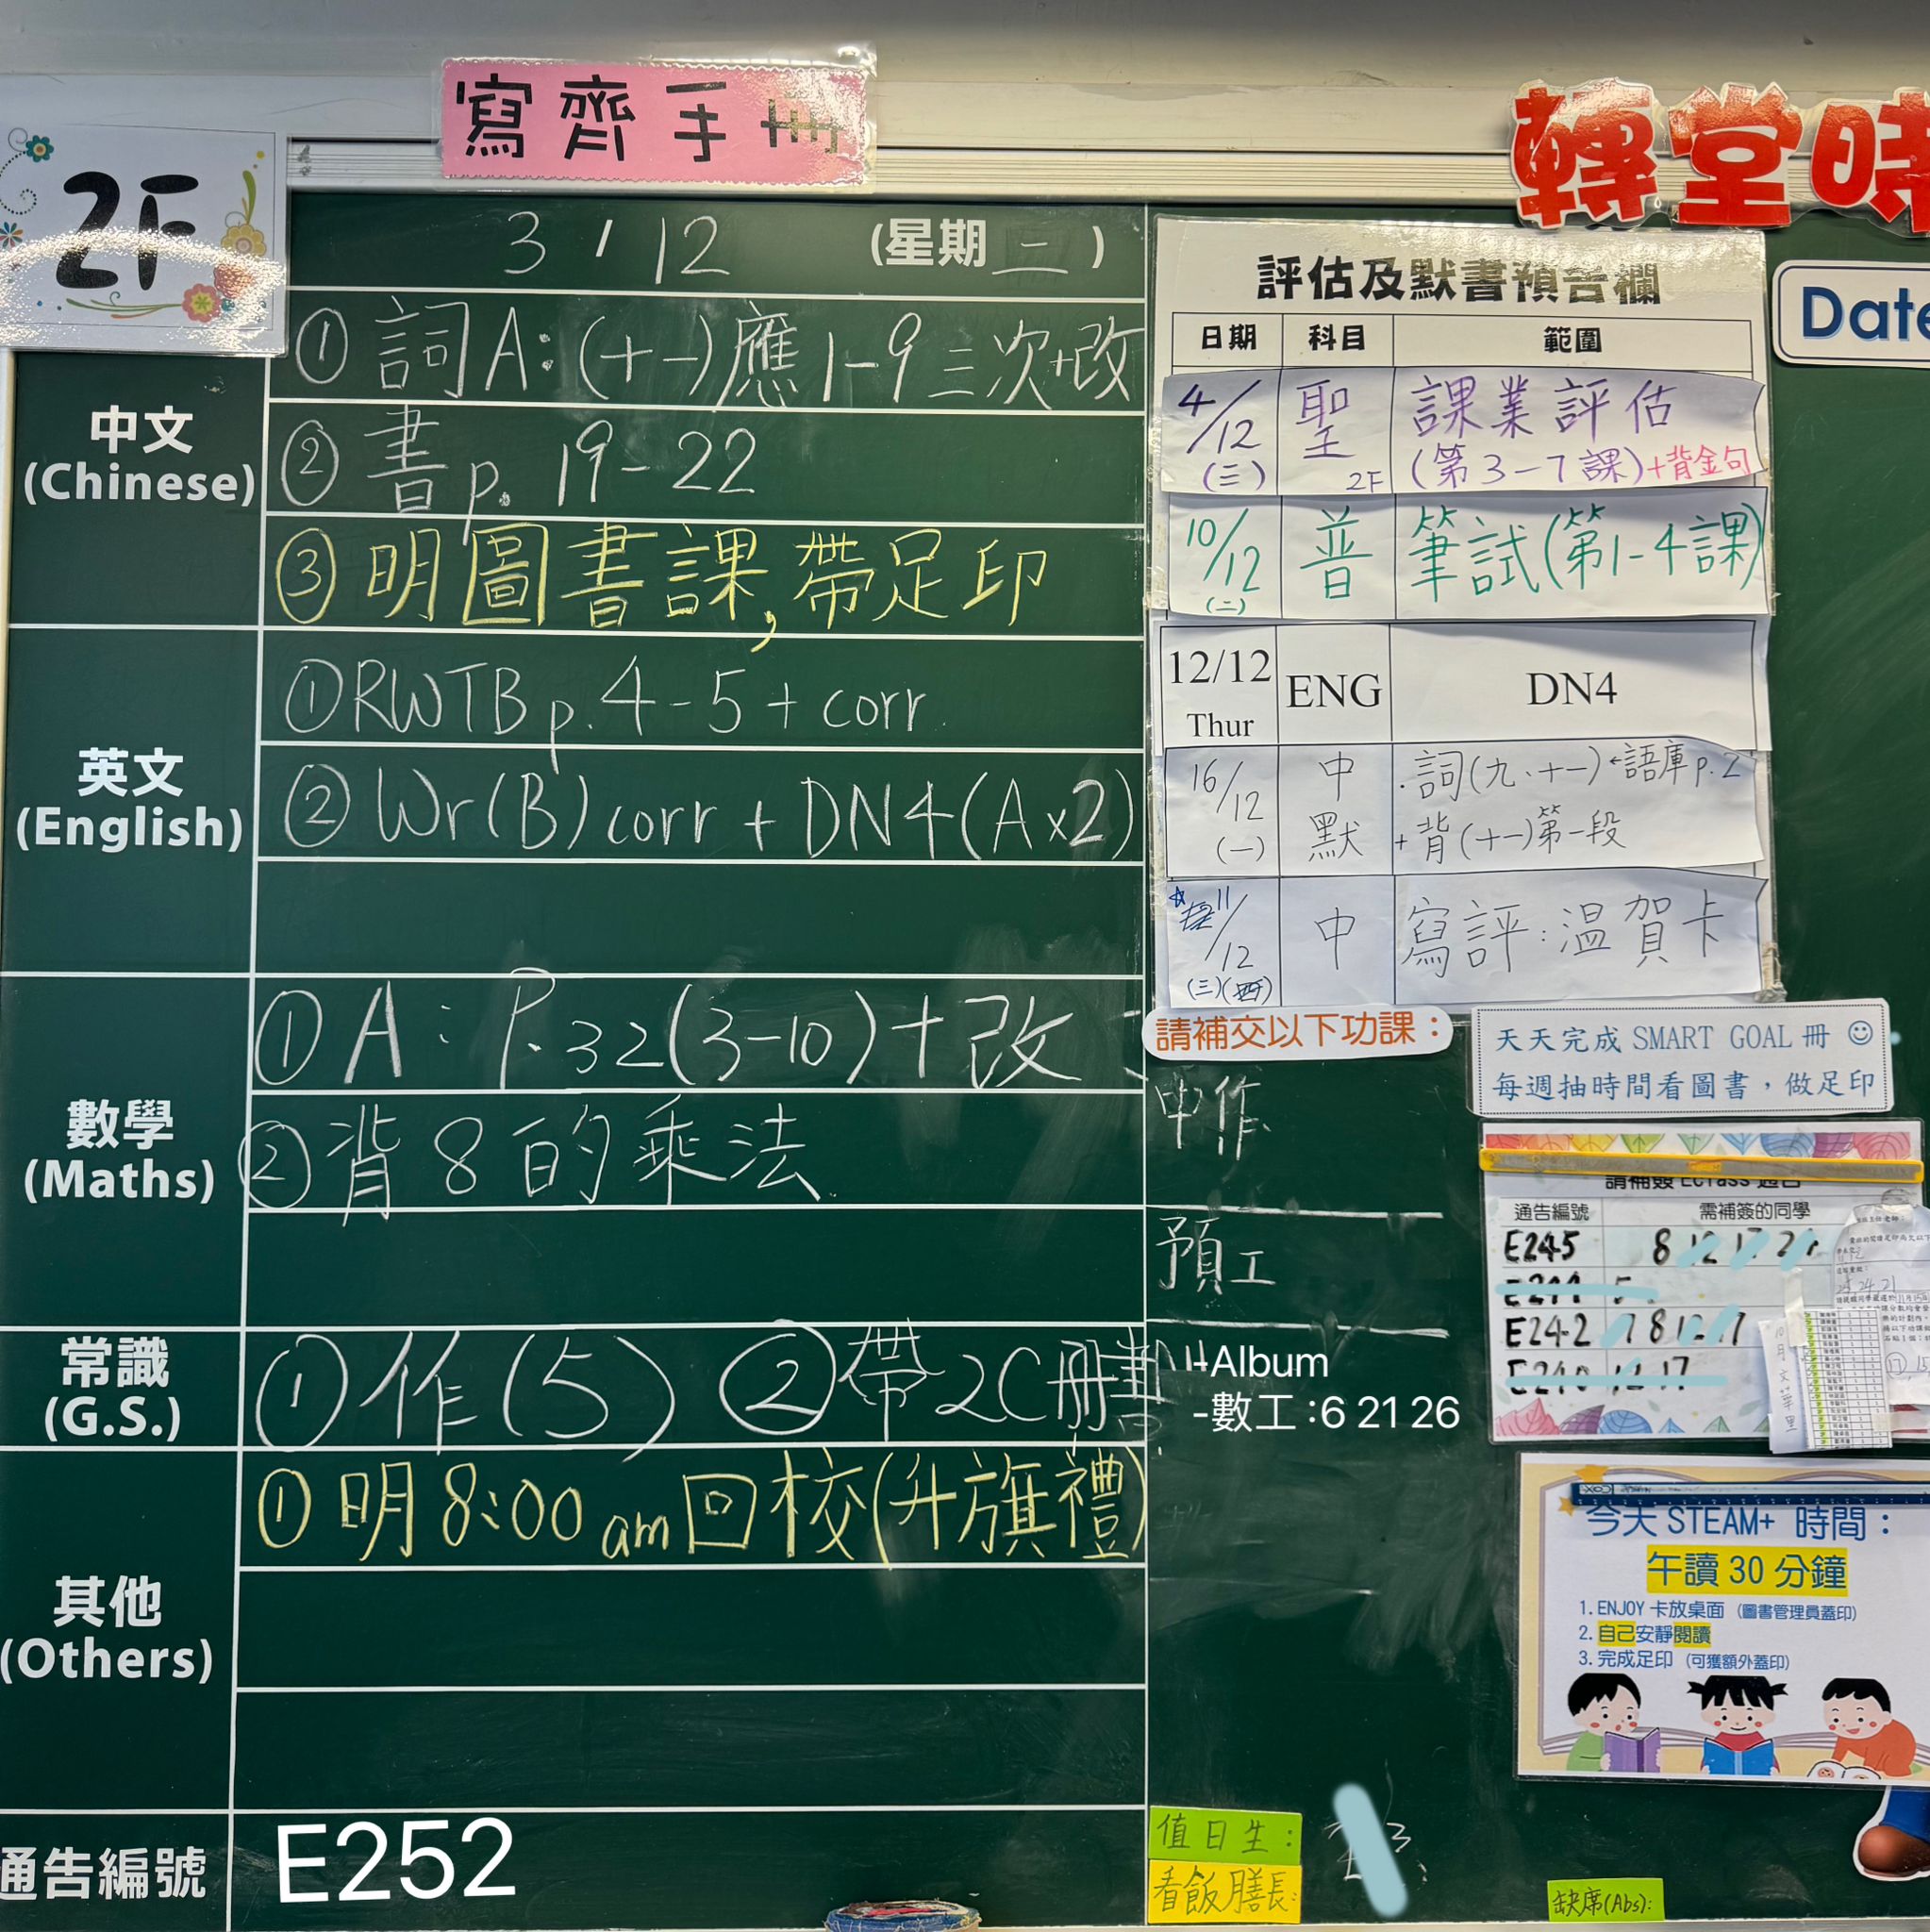 寫齊手冊
轉堂時
2F
3 / 12 (星期二)
中文
(Chinese)
① 詞A:(十一)應1-9三次+改
② 書p. 19-22
③ 明圖書課,帶足印
英文
(English)
① RWTB p.4-5 + corr.
② Wr(B) corr + DN4(A×2)
數學
(Maths)
① A : P.32(3-10)+改
② 背8的乘法
常識
(G.S.)
① 作(5) ② 帶2C冊書
其他
(Others)
① 明8:00am回校(升旗禮)
通告編號
E252
評估及默書預告欄
日期 科目 範圍
4/12 (三) 聖 2F 課業評估
(第3-7課)+背金句
10/12 (二) 普 筆試(第1-4課)
12/12 Thur ENG DN4
16/12 (一) 中默 ·詞(九、十一)←語庫p.2
+背(十一)第一段
11/12 (三) 中 寫評:溫賀卡
Date
請補交以下功課:
中作
預工
-Album
-數工:6 21 26
天天完成 SMART GOAL 冊
每週抽時間看圖書,做足印
通告編號 需補簽的同學
E245 8 12 17
E242 7 8 12 17
E240 12 17
今天 STEAM+ 時間:
午讀 30 分鐘
1. ENJOY 卡放桌面 (圖書管理員蓋印)
2. 自己安靜閱讀
3. 完成足印 (可獲額外蓋印)
值日生:
看飯膳長:
缺席(Abs):